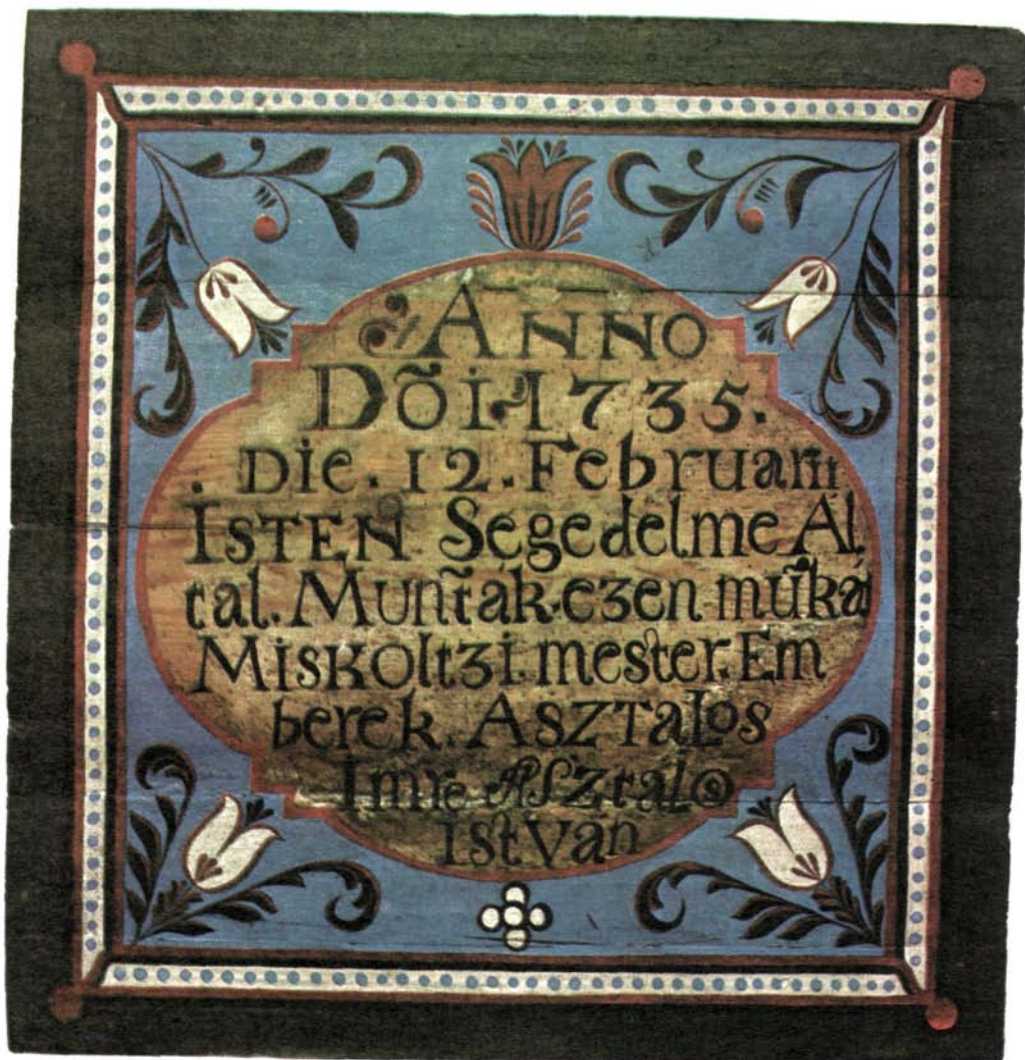 ANNO
Dõi 1735.
Die. 12. Februarii
ISTEN Segedelme Ál
tal. Munták ezen mũkát
Miskoltzi mester. Em
berek. ASZTALOS
Imre ASztalos
IstVan